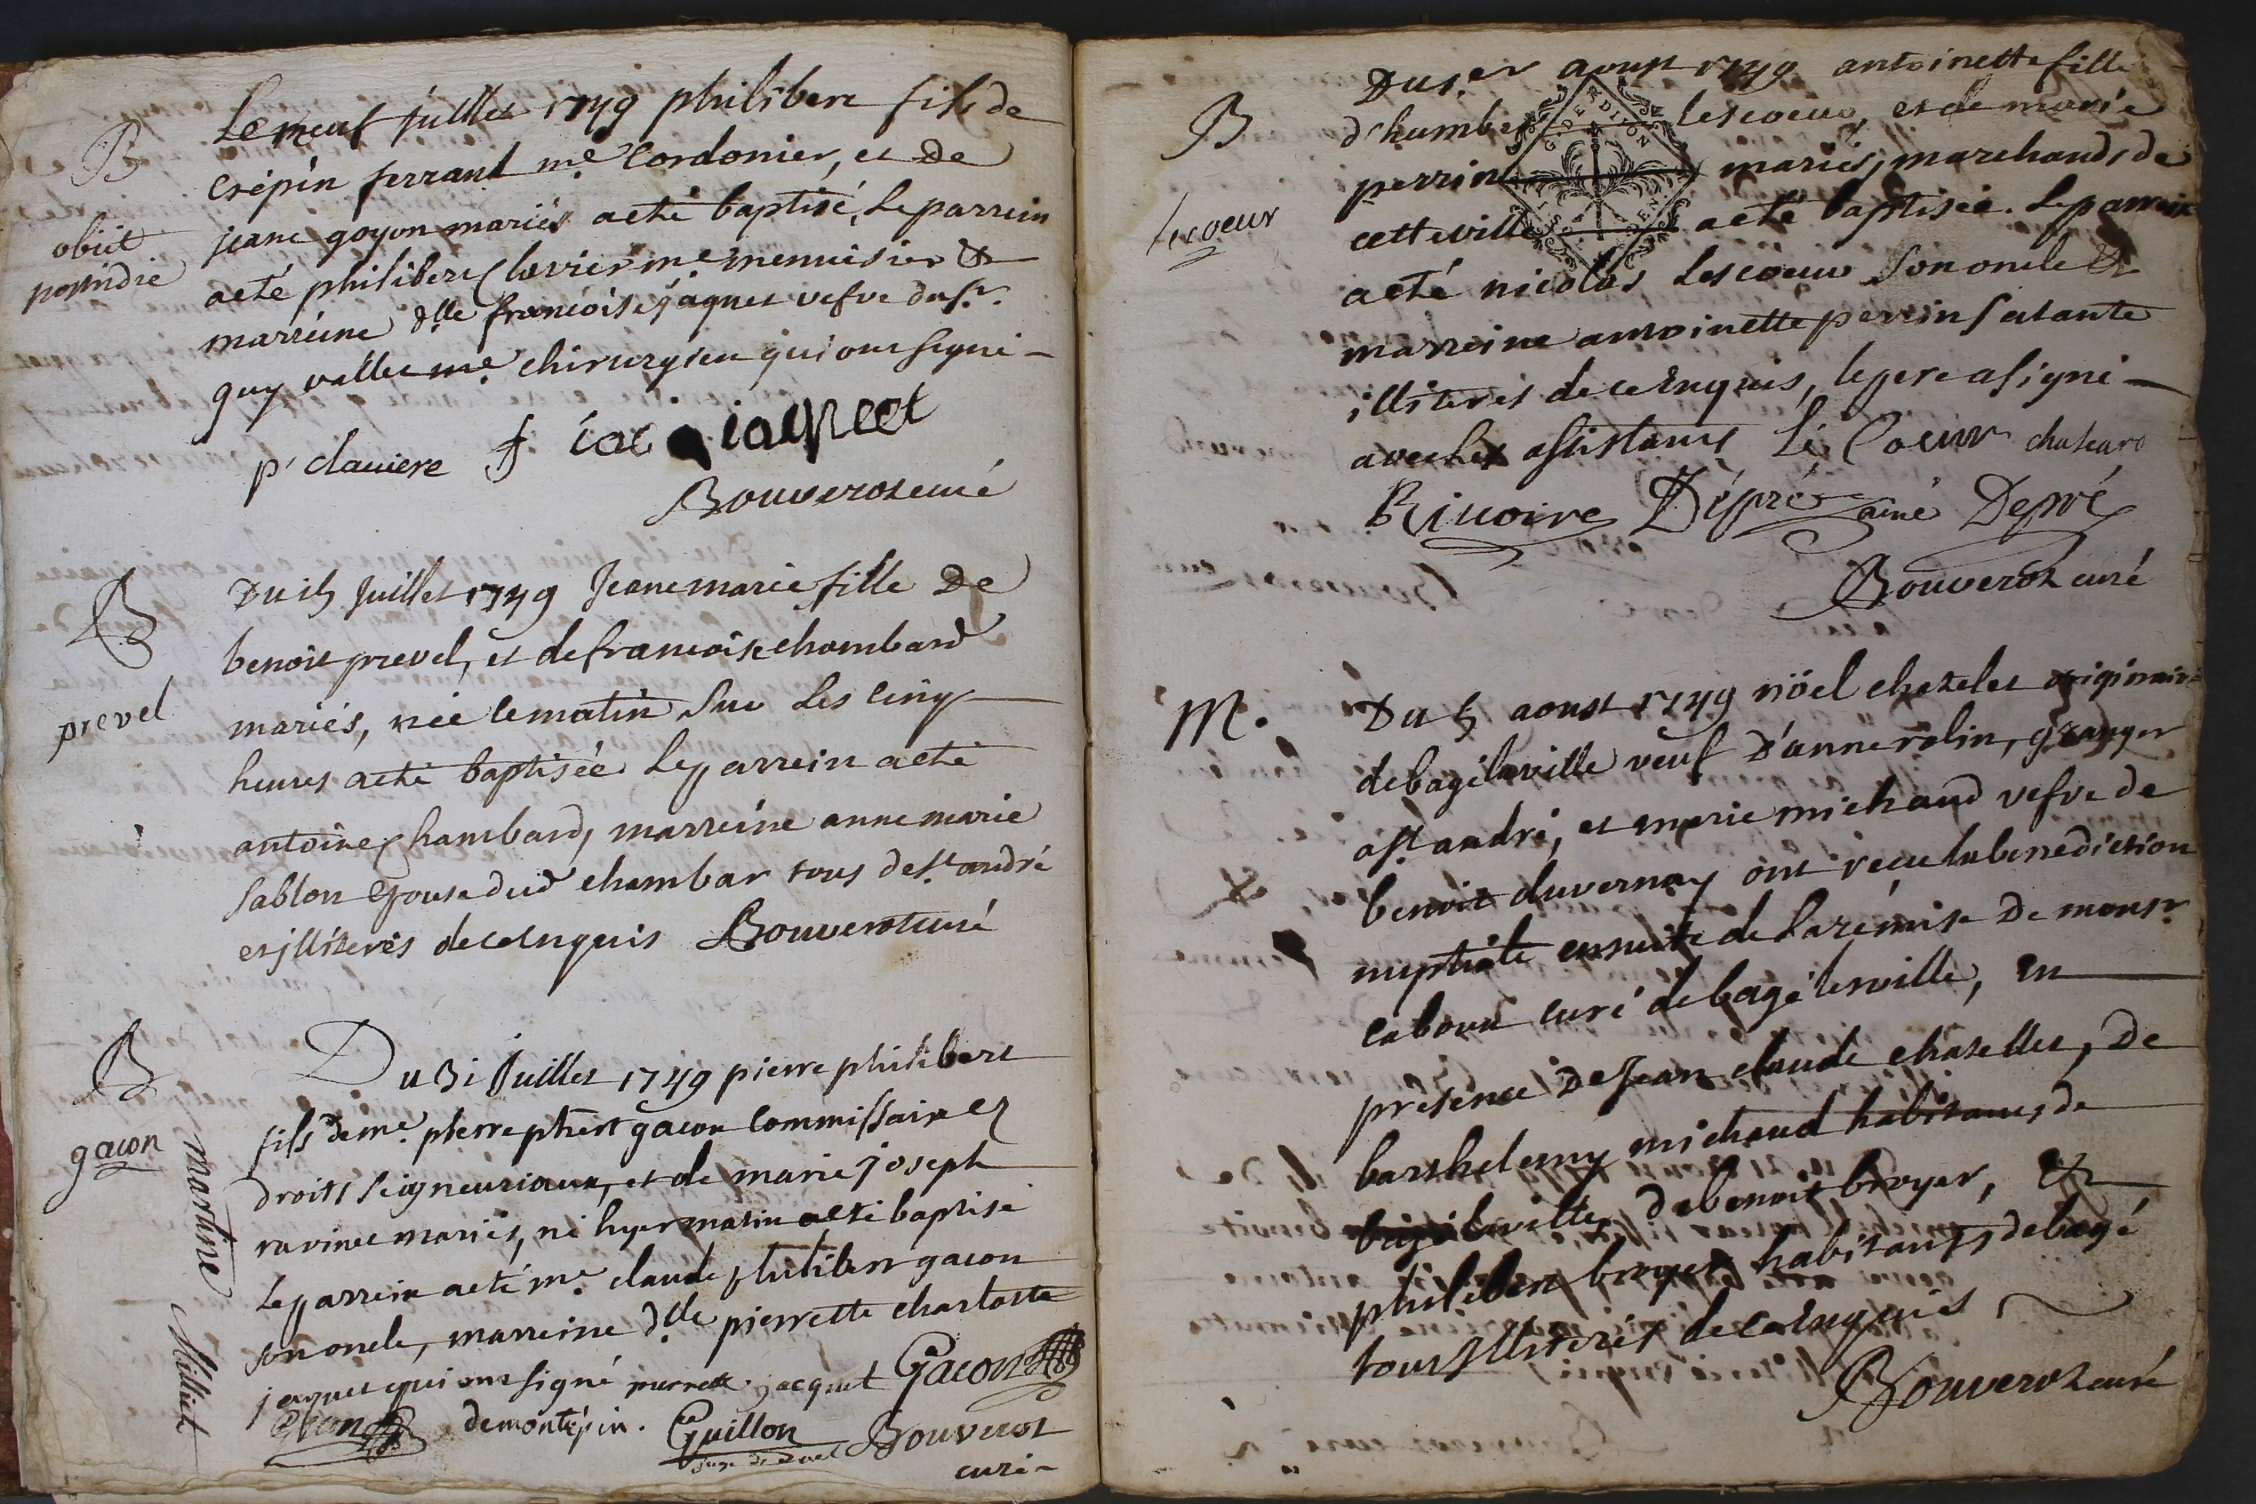 B
obiit
postridie
Le neuf juillet 1749 philibert fils de
crépin ferrand me. Cordonier, et De
jeane goyon mariés a eté baptisé, Le parrein
a eté philibert clavier me menuisier &
marreine dlle francoise jaquet vefve du sr.
guy vallet me. chirurgien qui ont signé -
p. claviere f iacquet
Bouverot curé
B
prevel
Du 15 Juillet 1749 Jeane marie fille De
benoit prevel, et de francoise chambard
mariés, née le matin Sur Les cinq
heures a eté baptisée Le parrein a eté
antoine chambard, marreine anne marie
Sablon epouse dud chambar tous de st. andré
et illiterés de ce enquis Bouverot curé
B
gacon
martine Milliet
Du 31 Juillet 1749 pierre philibert
fils de me. pierre phbert gacon Commissaire es
droits seigneuriaux, et de marie joseph
ravinet mariés, né hyer matin a eté baptisé
Le parrein a eté me. claude philibert gacon
son oncle, marreine dlle pierrette charlotte
jaquet qui ont signé pierrette jacquet Gacon
Gacon demontépin. Guillon Bouverot
curé -
B
Lecoeur
Du 1.er aoust 1749 antoinette fille
d'humbert Lescoeur, et de marie
perrin mariés, marchands de
cette ville a eté baptisée. Le parrein
a eté nicolas Lescoeur Son oncle &
marreine antoinette perrin sa tante
illiteres de ce enquis, le pere a signé -
avec les assistants Le Coeur chateard
Rivoire Dépré ainé Depré
Bouverot curé
G. DE DIJON
M.
Du 5 aoust 1749 nöel chatelet originaire
de bagé la ville veuf D'anne rolin, granger
a st andré, et marie michaud vefve de
benoit duvernay ont recu la benediction
nuptiale ensuite de la rémise De monsr.
cabour curé de bagé la ville, en
présence De Jean claude chatellet, De
barthelemy michaud habitants de
bagé la ville, de benoit broyer, &
philibert broyer habitants de bagé
tous Illiterés de ce enquis
Bouverot curé